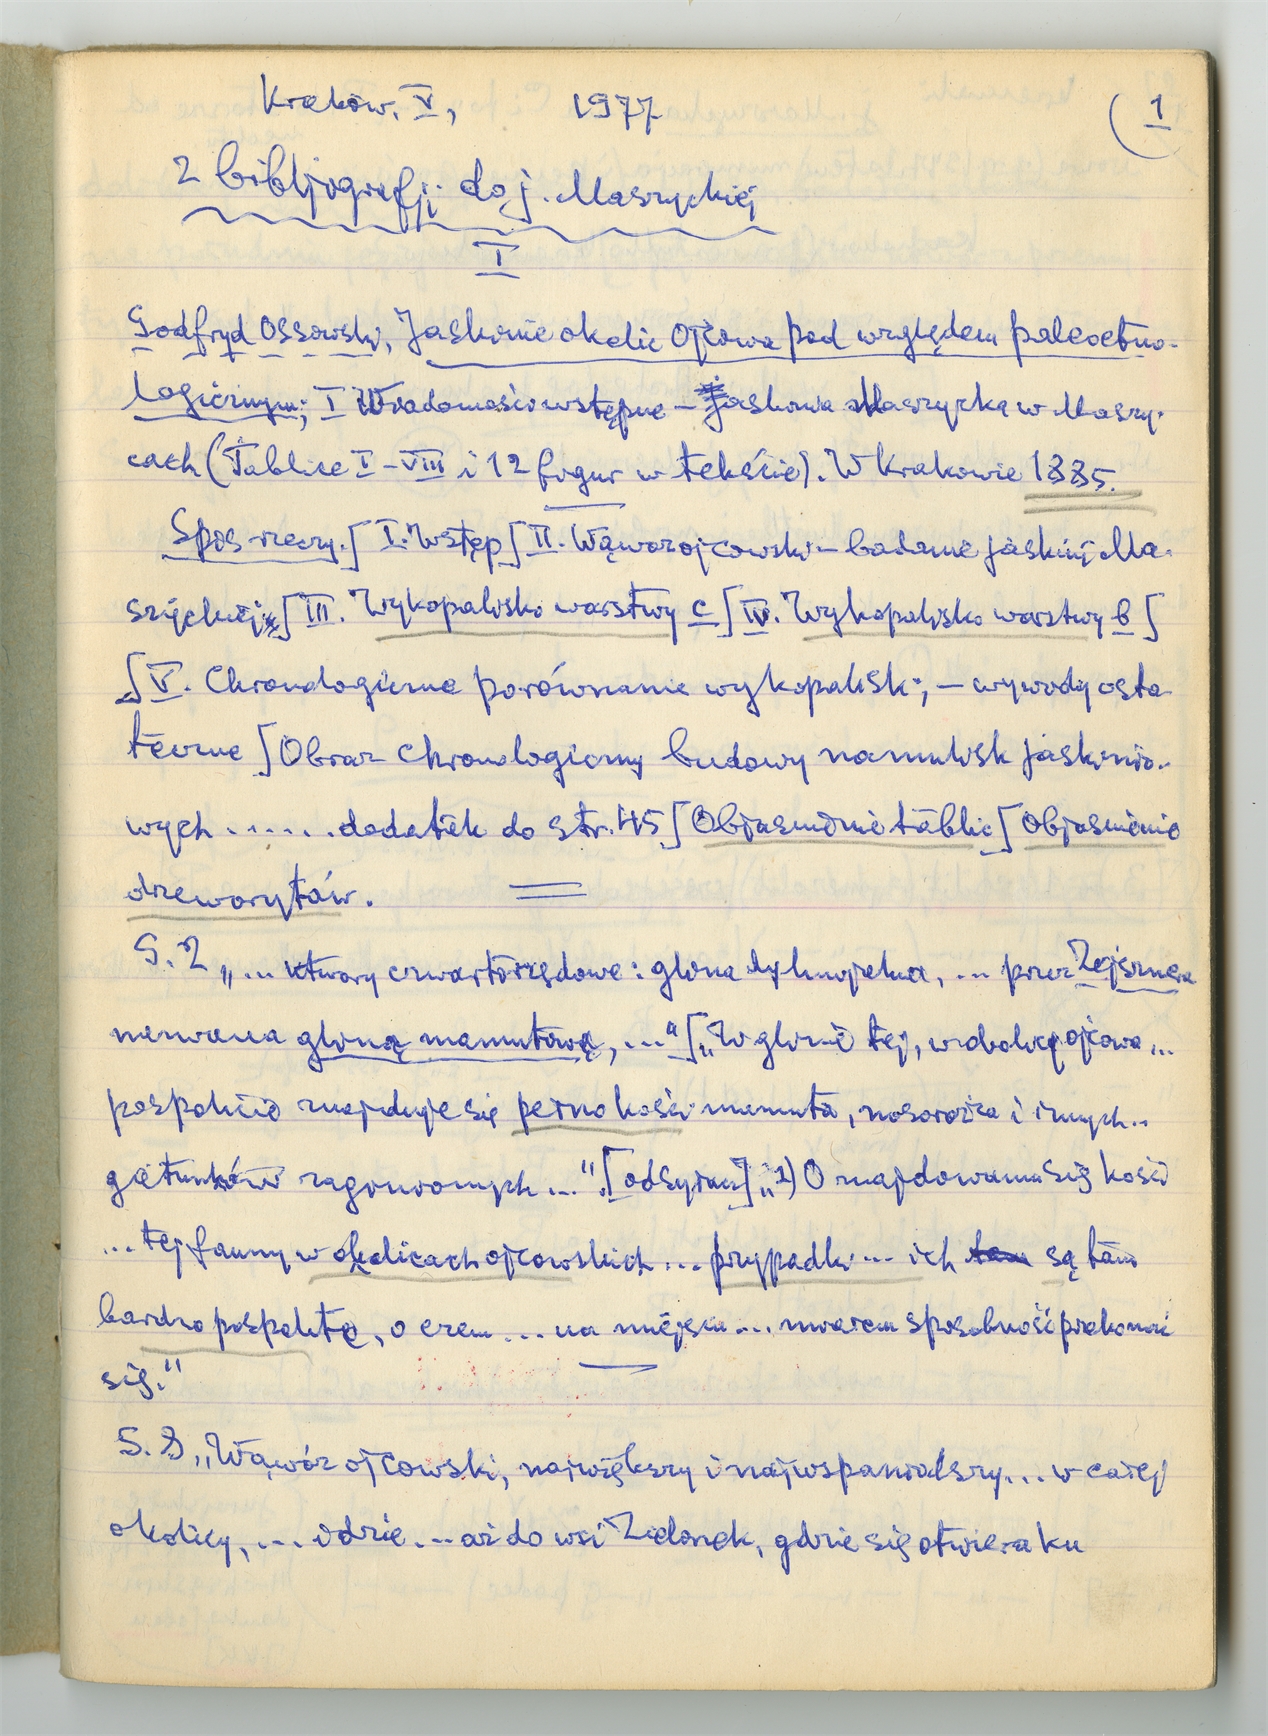 Kraków, V, 1977
(1
Z bibljografji do j. Maszyckiej
I
Godfryd Ossowski, Jaskinie okolic Ojcowa pod względem paleoetno-
logicznym; I Wiadomości wstępne – Jaskinia Maszycka w Maszy-
cach (Tablice I – VIII i 12 figur w tekście). W Krakowie 1885.
Spis rzeczy. [ I. Wstęp [ II. Wąwóz ojcowski – badanie jaskini Ma-
szyckiej [ III. Wykopalisko warstwy c [ IV. Wykopalisko warstwy b [
[ V. Chronologiczne porównanie wykopalisk; – wywody osta-
teczne [ Obraz chronologiczny budowy namulisk jaskinio-
wych ...... dodatek do str. 45 [ Objaśnienie tablic [ Objaśnienie
drzeworytów.
S. 2 „... utwory czwartorzędowe: glina dyluwjalna, ... przez Zejsznera
nazwana gliną mamutową, ..." [ „W glinie tej, w okolicy Ojcowa ...
pospolicie znajduje się pełno kości mamuta, nosorożca i innych ..
gatunków zaginionych ..." [odsyłacz] „1) O znajdowaniu się kości
... tej fauny w okolicach ojcowskich ... przypadki ... ich są tam
bardzo pospolite, o czem ... na miejscu ... miałem sposobność przekonać
się."
S. 3 „Wąwóz ojcowski, największy i najwspanialszy ... w całej
okolicy, ... idzie ... aż do wsi Zielonek, gdzie się otwiera ku